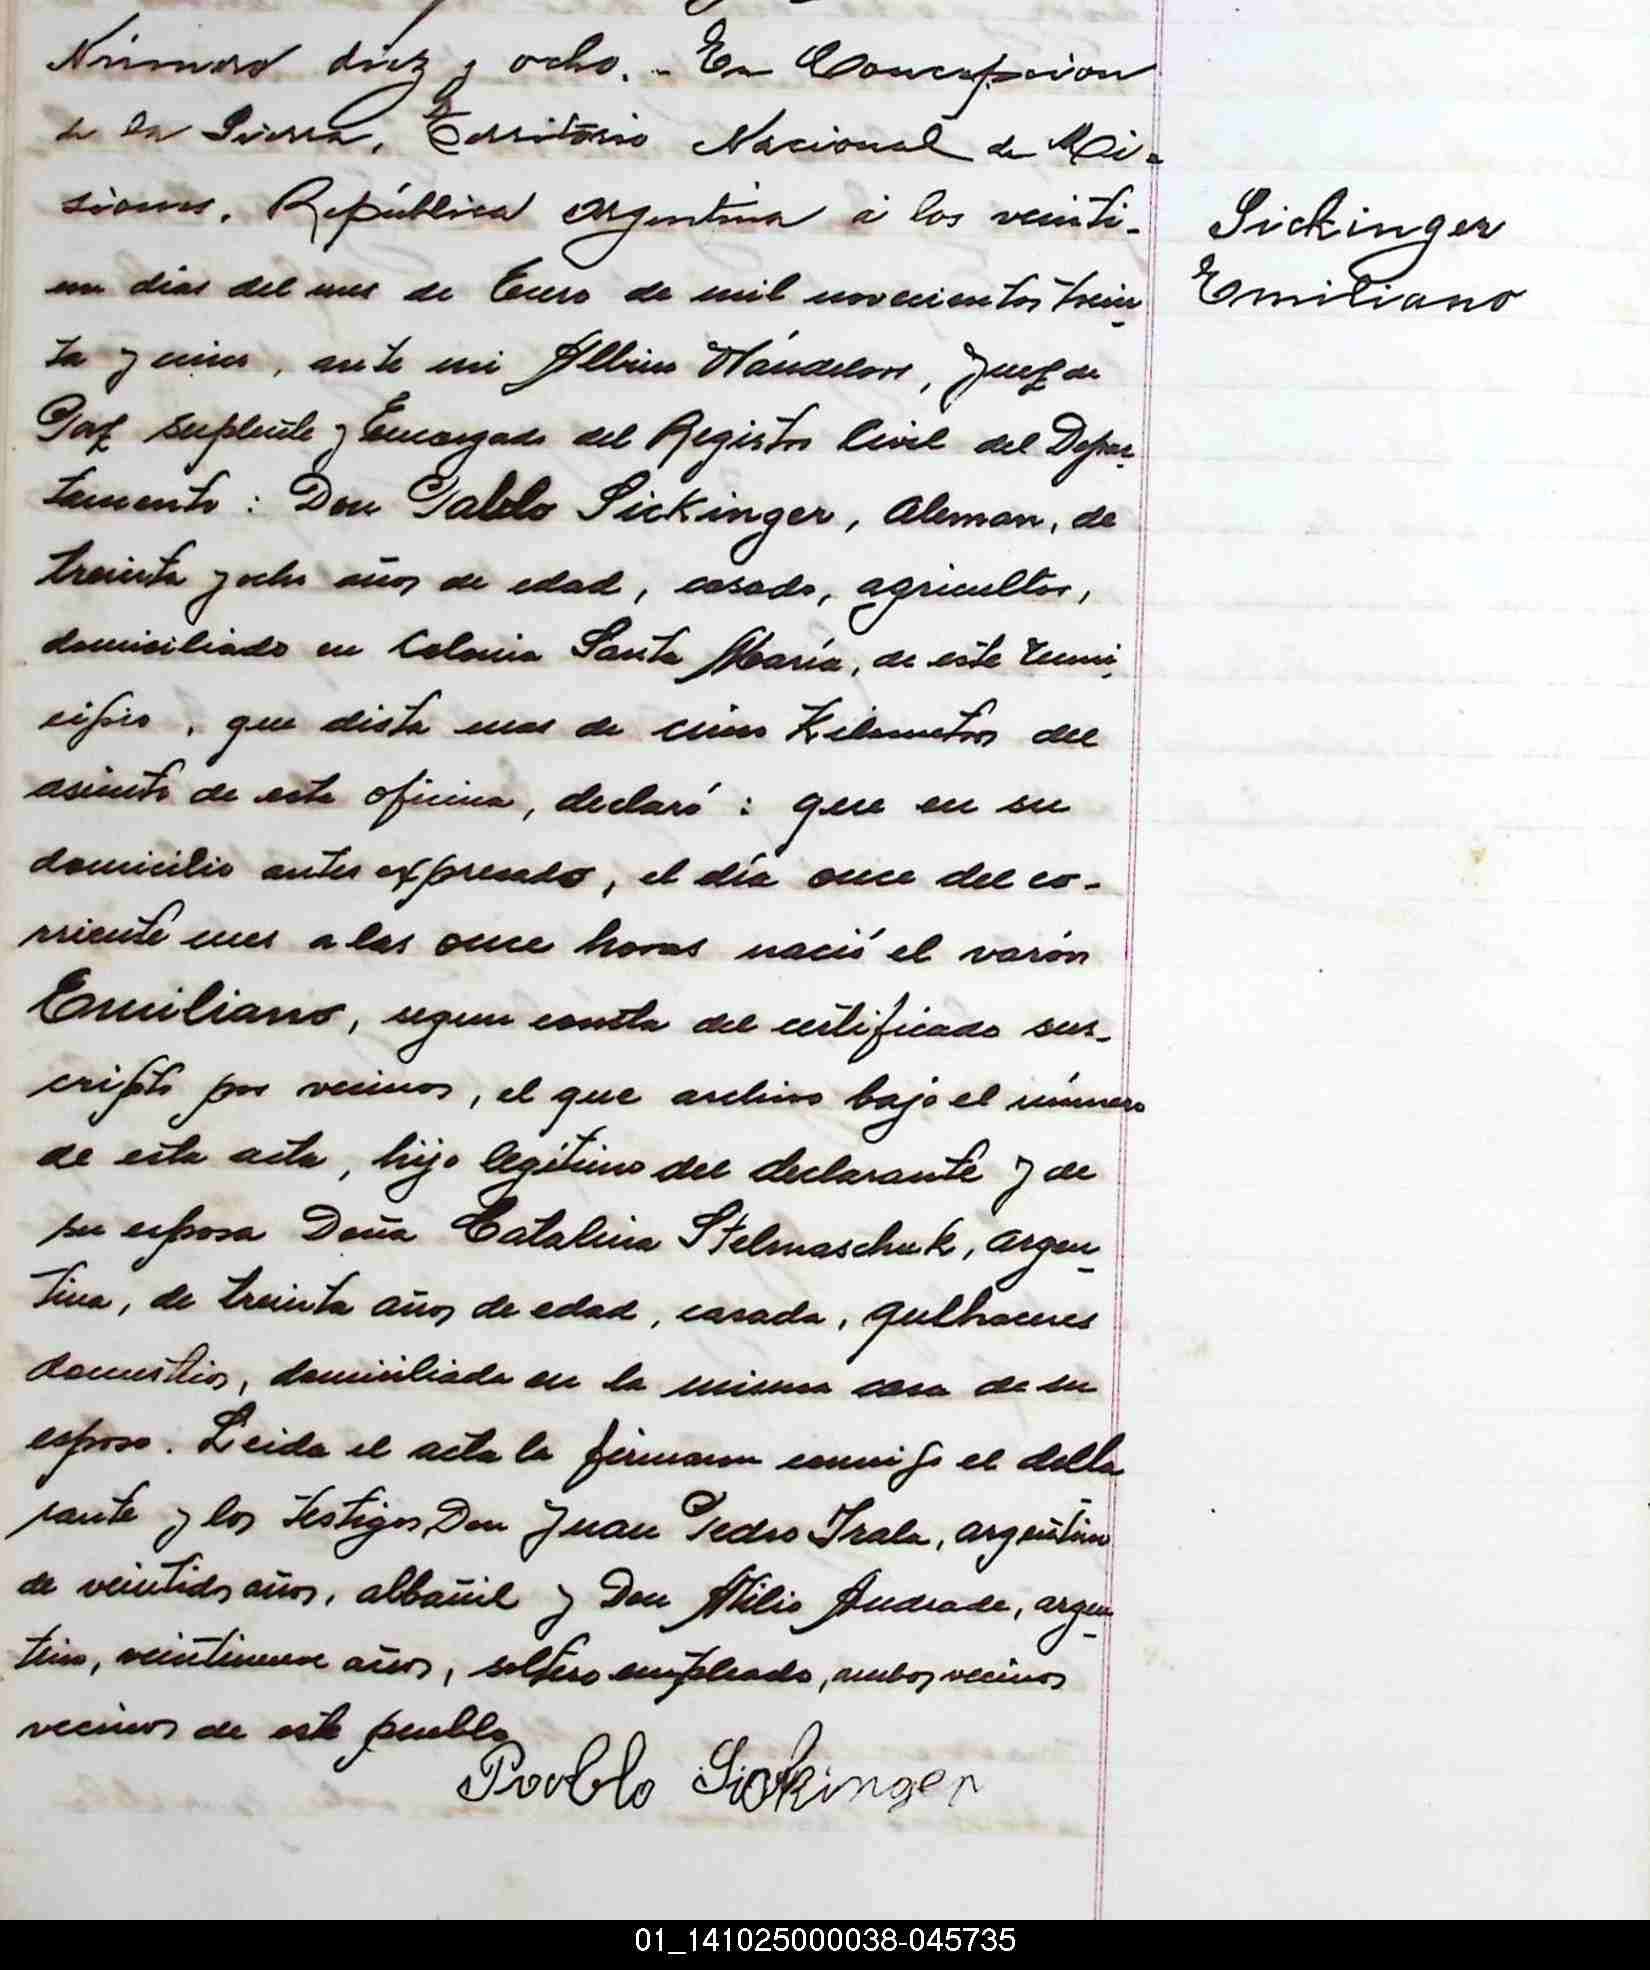 Número diez y ocho. - En Concepcion
de la Sierra, Territorio Nacional de Mi-
siones, República Argentina á los veinti-
un dias del mes de Enero de mil novecientos trein-
ta y cinco, ante mi Albino, Juez de
Paz suplente y Encargado del Registro Civil del Depar-
tamento: Don Pablo Sickinger, Aleman, de
treinta y ocho años de edad, casado, agricultor,
domiciliado en Colonia Santa María, de este
cipio, que dista mas de cinco Kilometros del
asiento de esta oficina, declaró: que en su
domicilio antes expresado, el día once del co-
rriente mes a las once horas nació el varón
Emiliano, segun consta del certificado sus-
cripto por vecinos, el que archivo bajo el número
de esta acta, hijo legítimo del declarante y de
su esposa Doña Catalina Stelmaschuk, argen-
tina, de treinta años de edad, casada, quehaceres
domesticos, domiciliada en la misma casa de su
esposo. Leida el acta la firmaron conmigo el decla
rante y los testigos Don Juan Pedro Irala, argentino
de veintidos años, albañil y Don Atilio Andrade, argen-
tino, veintinueve años, soltero empleado, ambos vecinos
vecinos de este pueblo
Pablo Sickinger
Sickinger
Emiliano
01_141025000038-045735